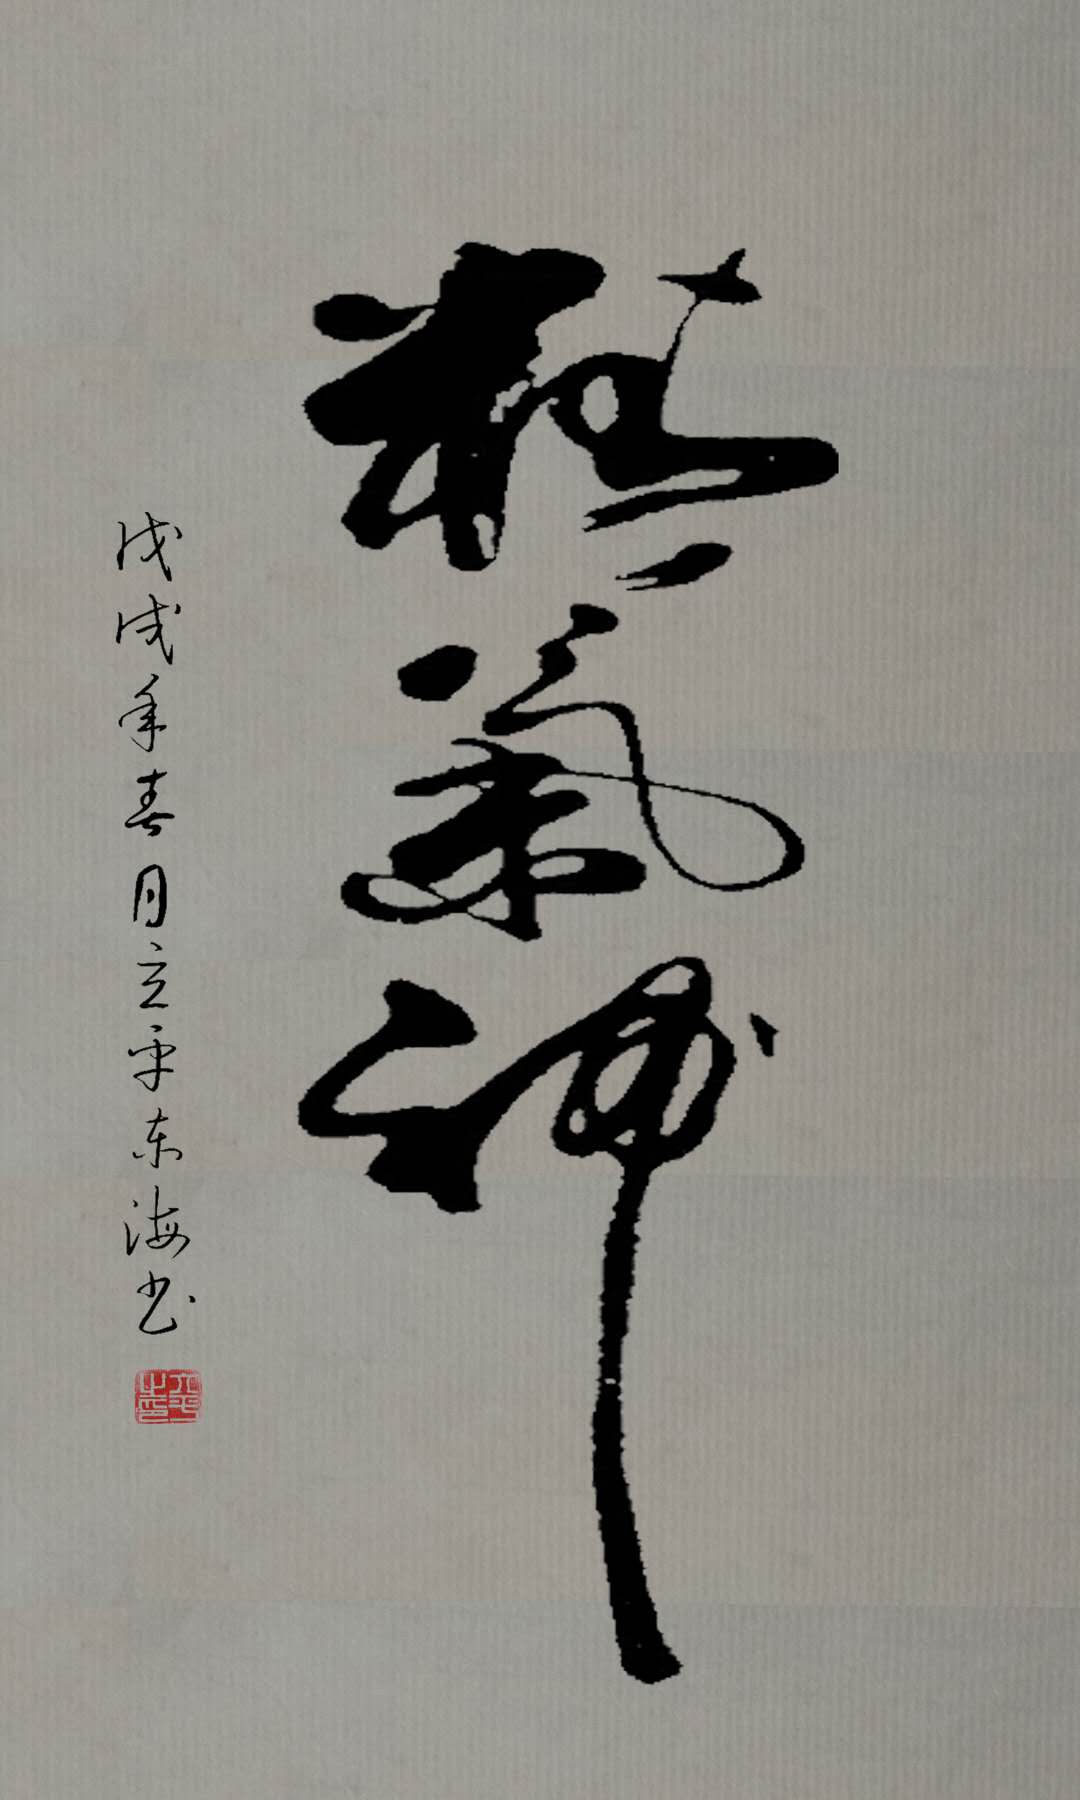 精氣神
戊戌年春月立平东海书